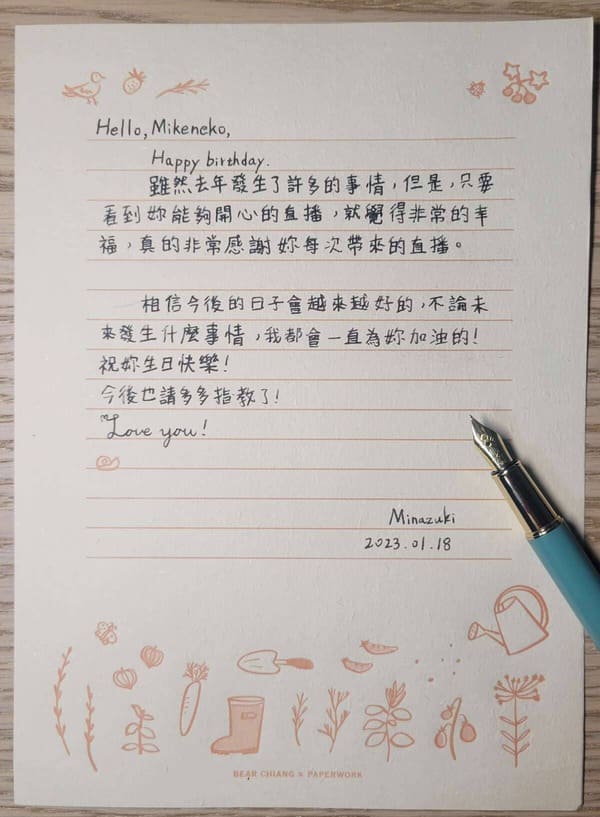 Hello, Mikeneko,
Happy birthday.
雖然去年發生了許多的事情，但是，只要
看到妳能夠開心的直播，就覺得非常的幸
福，真的非常感謝妳每次帶來的直播。
相信今後的日子會越來越好的，不論未
來發生什麼事情，我都會一直為妳加油的！
祝妳生日快樂！
今後也請多多指教了！
Love you!
Minazuki
2023.01.18
BEAR CHIANG × PAPERWORK